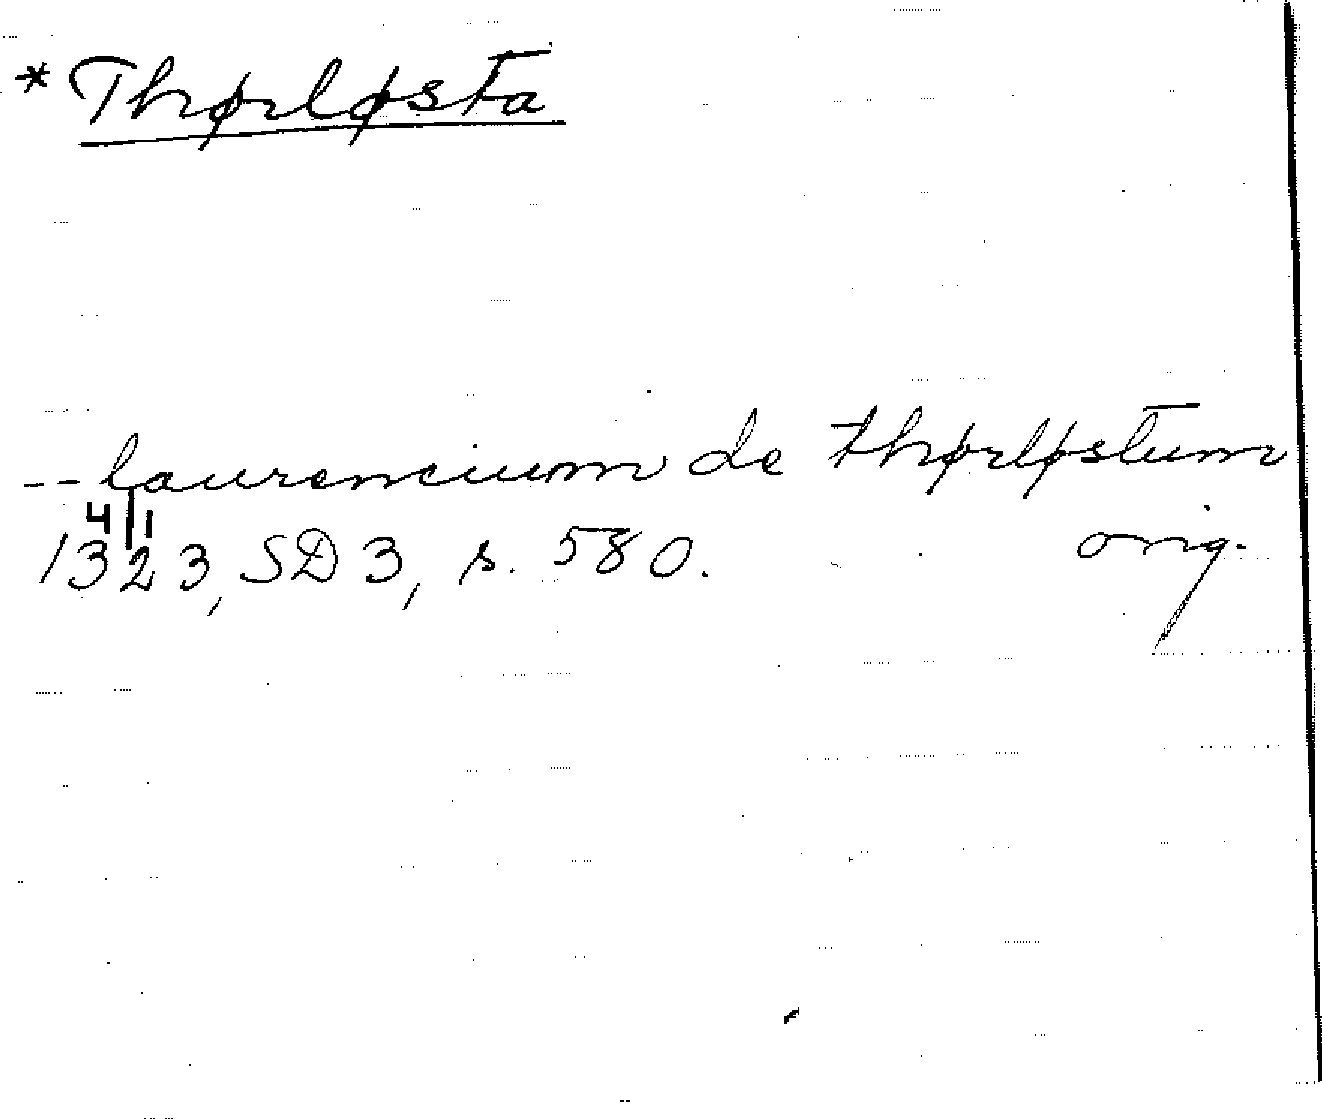 * Thørløsta
-- laurencium de thørløstum
4/1
1323, SD 3, s. 580. orig.